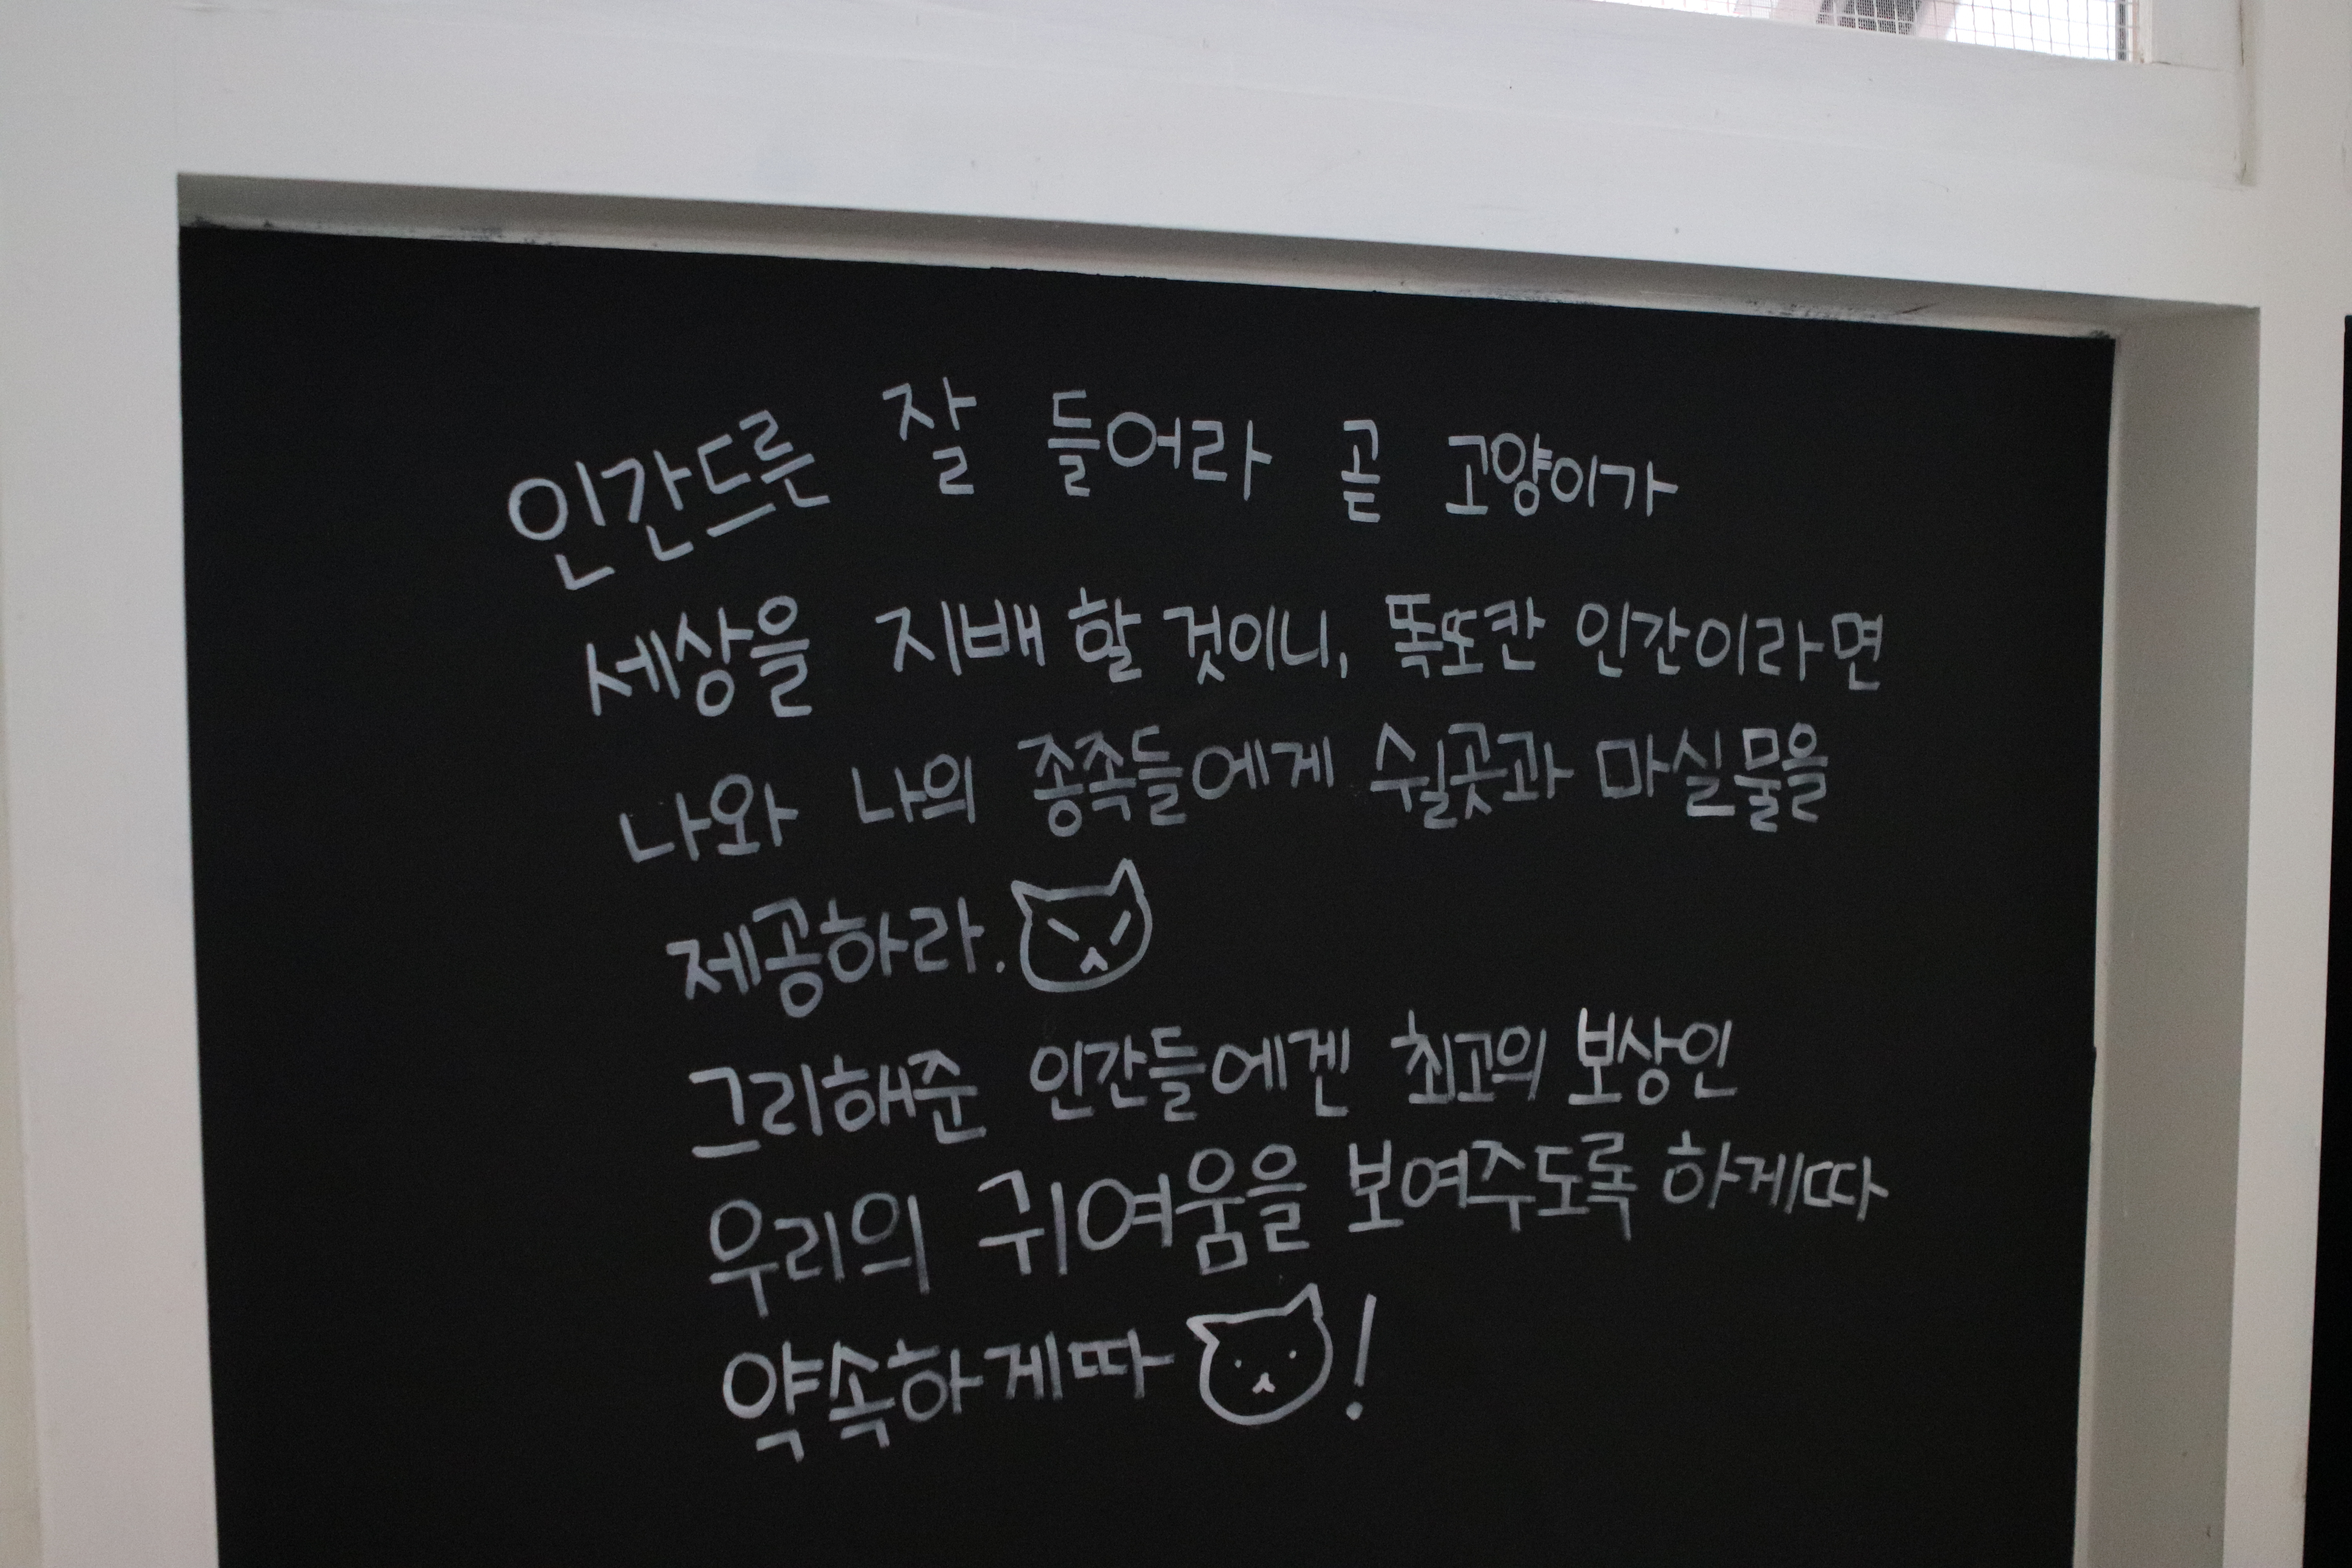 인간드른 잘 들어라 곧 고양이가
세상을 지배 할 것이니, 똑또칸 인간이라면
나와 나의 종족들에게 쉴곳과 마실물을
제공하라.
그리해준 인간들에겐 최고의 보상인
우리의 귀여움을 보여주도록 하게따
약속하게따 !